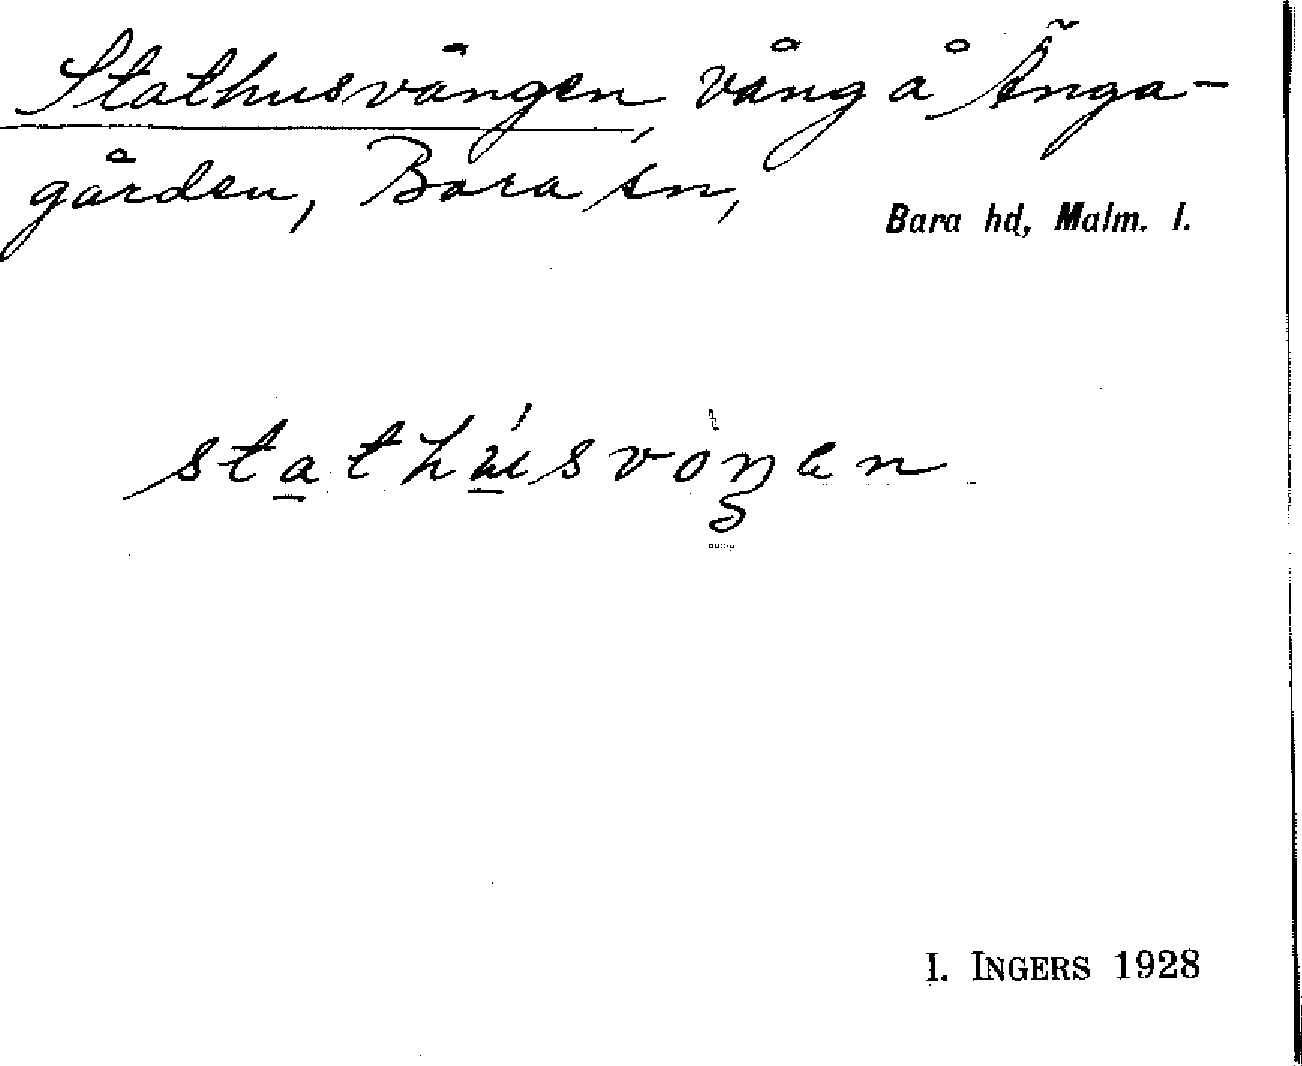 Stathusvången, vång å Änga-
gården, Bara sn,
Bara hd, Malm. l.
stathúsvòŋen
I. INGERS 1928